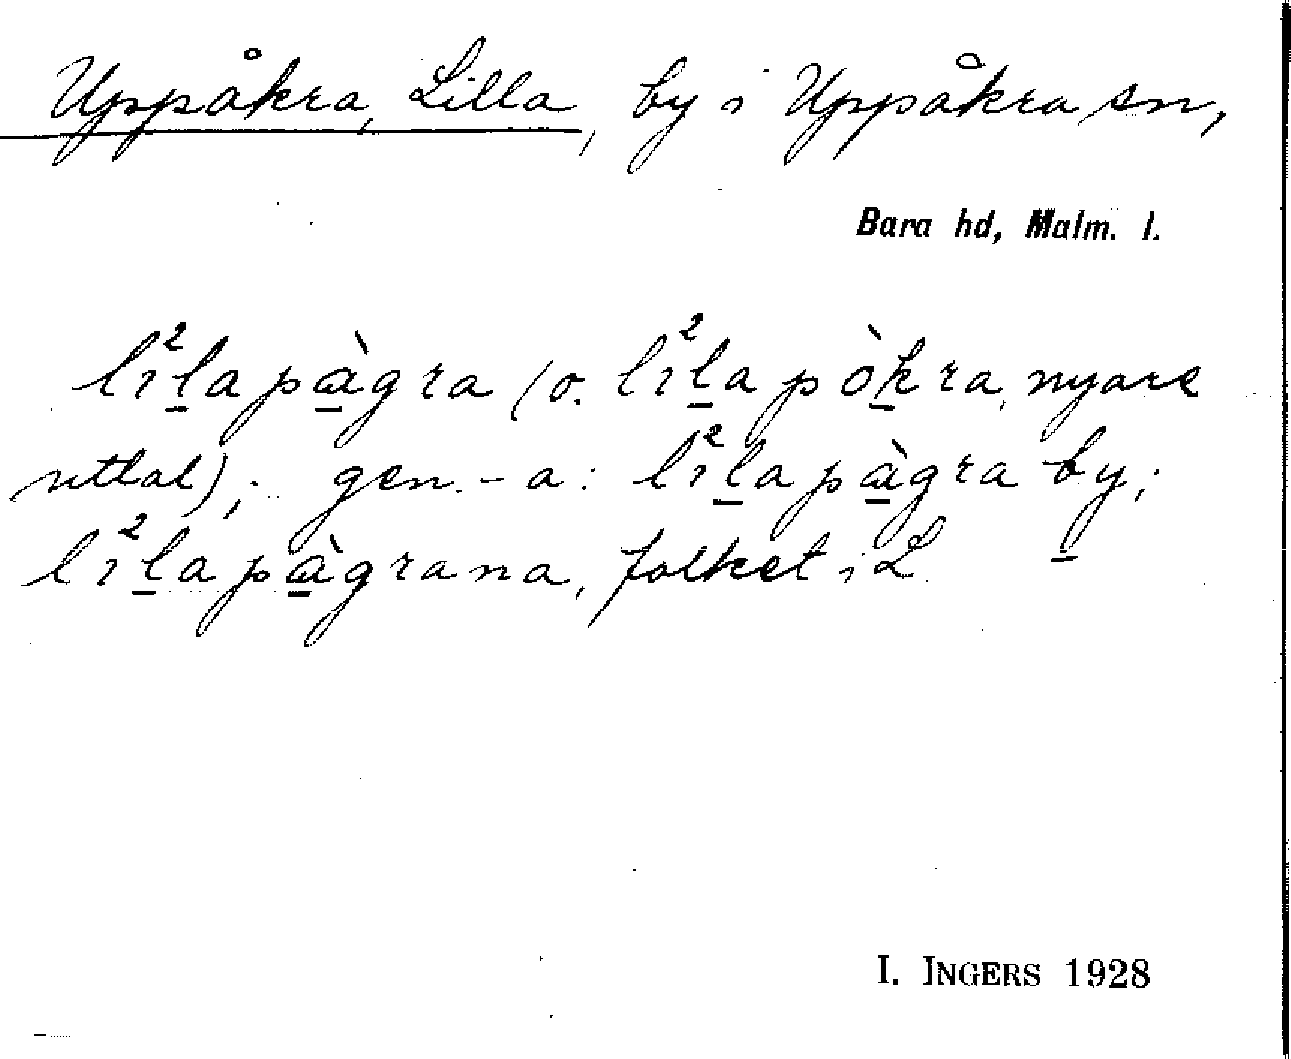 Uppåkra, Lilla, by i Uppåkra sn,
Bara hd, Malm. l.
li²l̲apà̲gra (o. li²l̲apòk̲ra, nyare
uttal); gen. -a: li²l̲apà̲gra by;
li²l̲apà̲grana, folket i L.
I. INGERS 1928